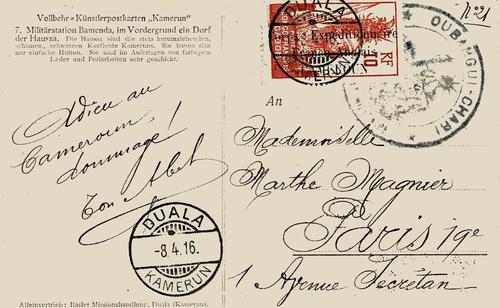 Vollbehr-Künstlerpostkarten „Kamerun“
7. Militärstation Bamenda, im Vordergrund ein Dorf
der Haussa. Die Haussa sind die stets herumziehenden,
schlauen, schwarzen Kaufleute Kameruns. Sie bauen sich
nur einfache Hütten. Sie sind im Anfertigen von farbigem
Leder und Perlarbeiten sehr geschickt.
Adieu au
Cameroun,
dommage!
Ton Abel
DUALA
KAMERUN
Corps Expéditionnaire
RF
10
OUBANGUI-CHARI
N° 21
An
Mademoiselle
Marthe Magnier
Paris 19e
1 Avenue Secrétan
DUALA
-8.4.16.
KAMERUN
Alleinvertrieb: Basler Missionshandlung, Duala (Kamerun).